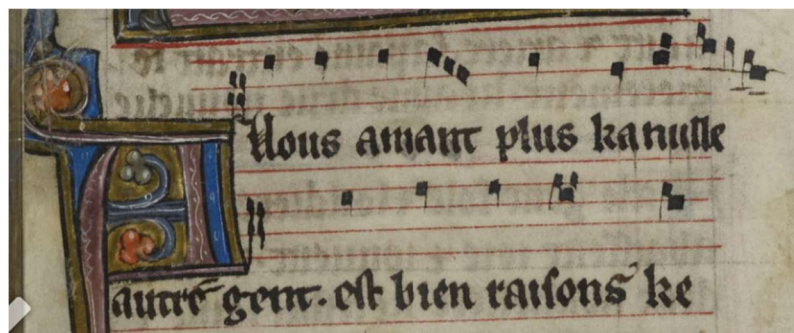 A Uous amant plus kanulle
autre gent. est bien raisons ke